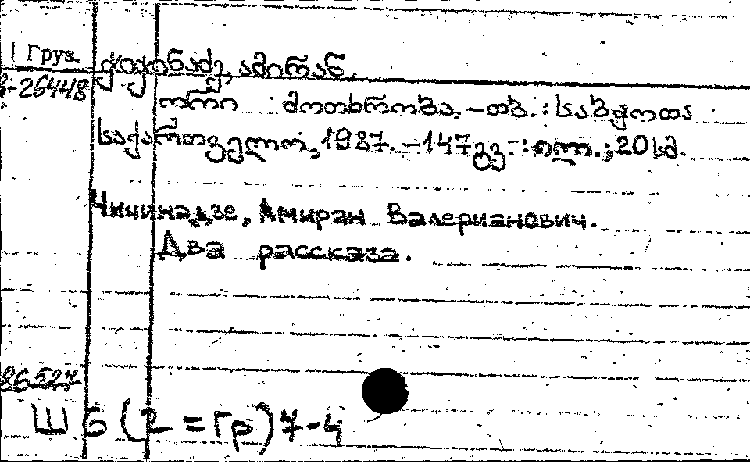 Груз.
ჭიჭინაძე, ამირან.
-26448
ორი მოთხრობა. – თბ. : საბჭოთა
საქართველო, 1987. – 147 გვ. : ილ. ; 20 სმ.
Чичинадзе, Амиран Валерианович.
Два рассказа.
86527
Ш 6 (2 = Гр) 7-4